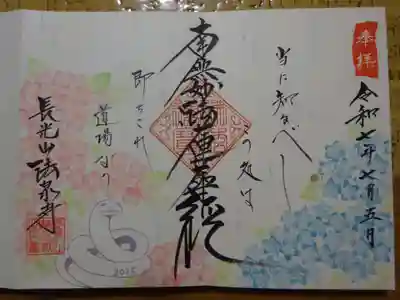 奉拝
令和七年七月五日
当に知るべし
この處は
南無妙法蓮華経
即ちこれ
道場なり
長光山 法泉寺
2025